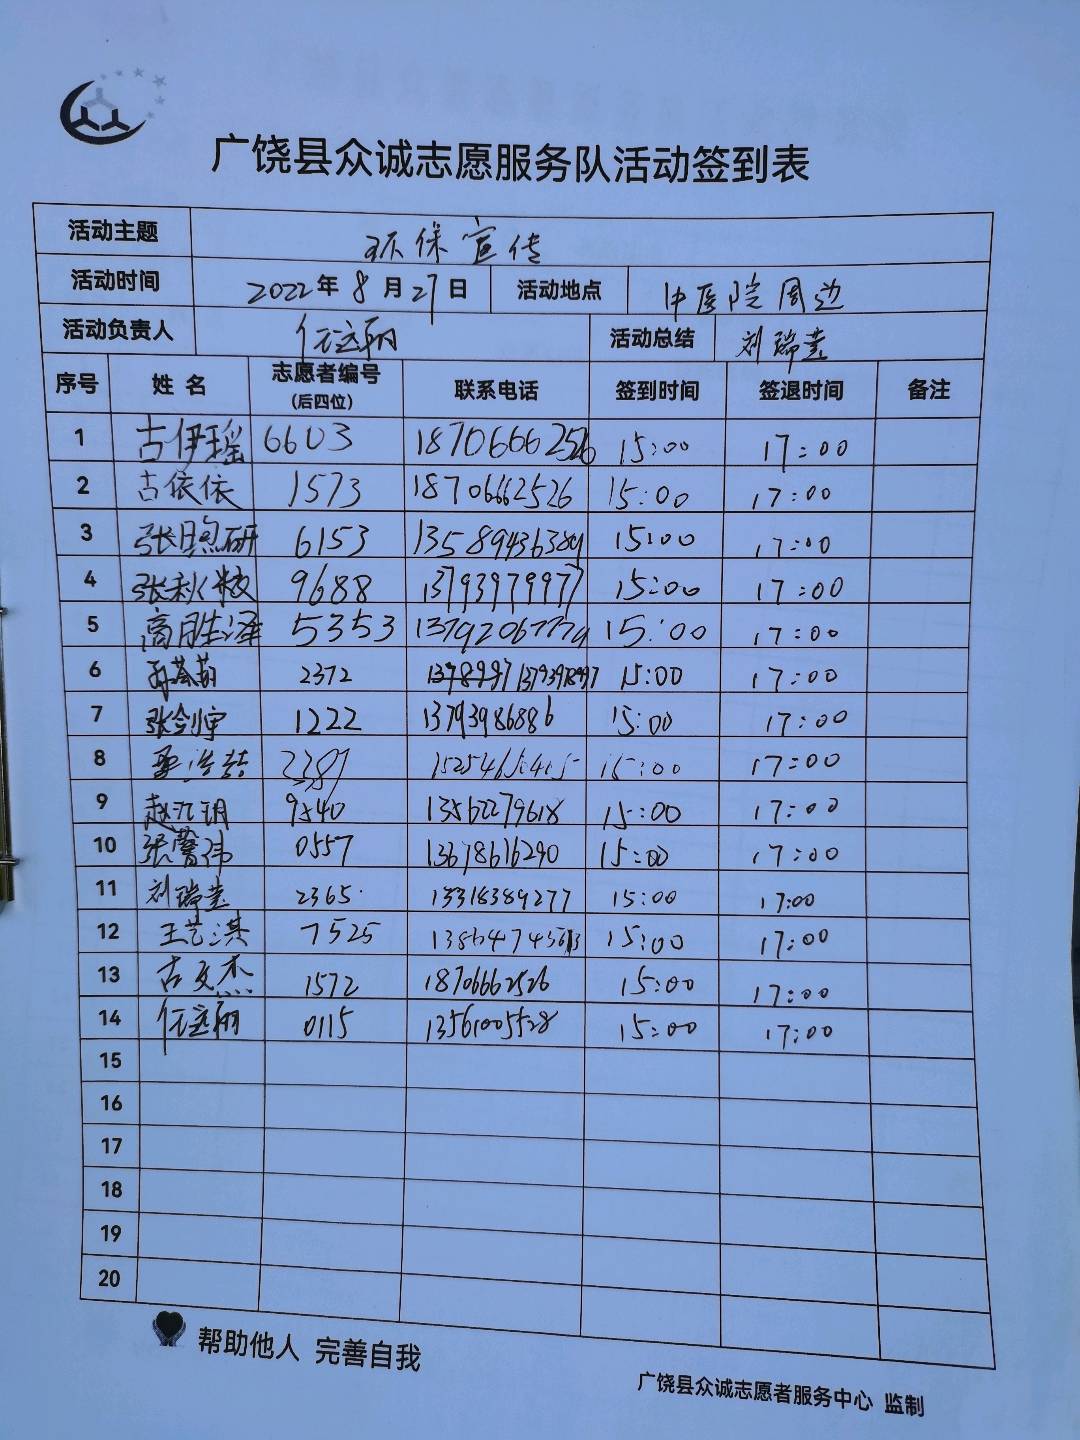 广饶县众诚志愿服务队活动签到表
活动主题 环保宣传
活动时间 2022年8月27日 活动地点 中医院周边
活动负责人 任远丽 活动总结 刘瑞莹
序号 姓名 志愿者编号(后四位) 联系电话 签到时间 签退时间 备注
1 古伊瑶 6603 18706662526 15:00 17:00
2 古依依 1573 18706662526 15:00 17:00
3 张煦研 6153 13589436389 15:00 17:00
4 张秋 9688 13793979977 15:00 17:00
5 高胜泽 5353 13792067779 15:00 17:00
6 2372 15:00 17:00
7 张剑宇 1222 13793986886 15:00 17:00
8 15:00 17:00
9 赵汇玥 9540 13562279618 15:00 17:00
10 张馨伟 0557 13678616290 15:00 17:00
11 刘瑞莹 2365 13318389277 15:00 17:00
12 王艺淇 7525 15:00 17:00
13 古文杰 1572 18706662526 15:00 17:00
14 任远丽 0115 13561005528 15:00 17:00
15
16
17
18
19
20
帮助他人 完善自我
广饶县众诚志愿者服务中心 监制